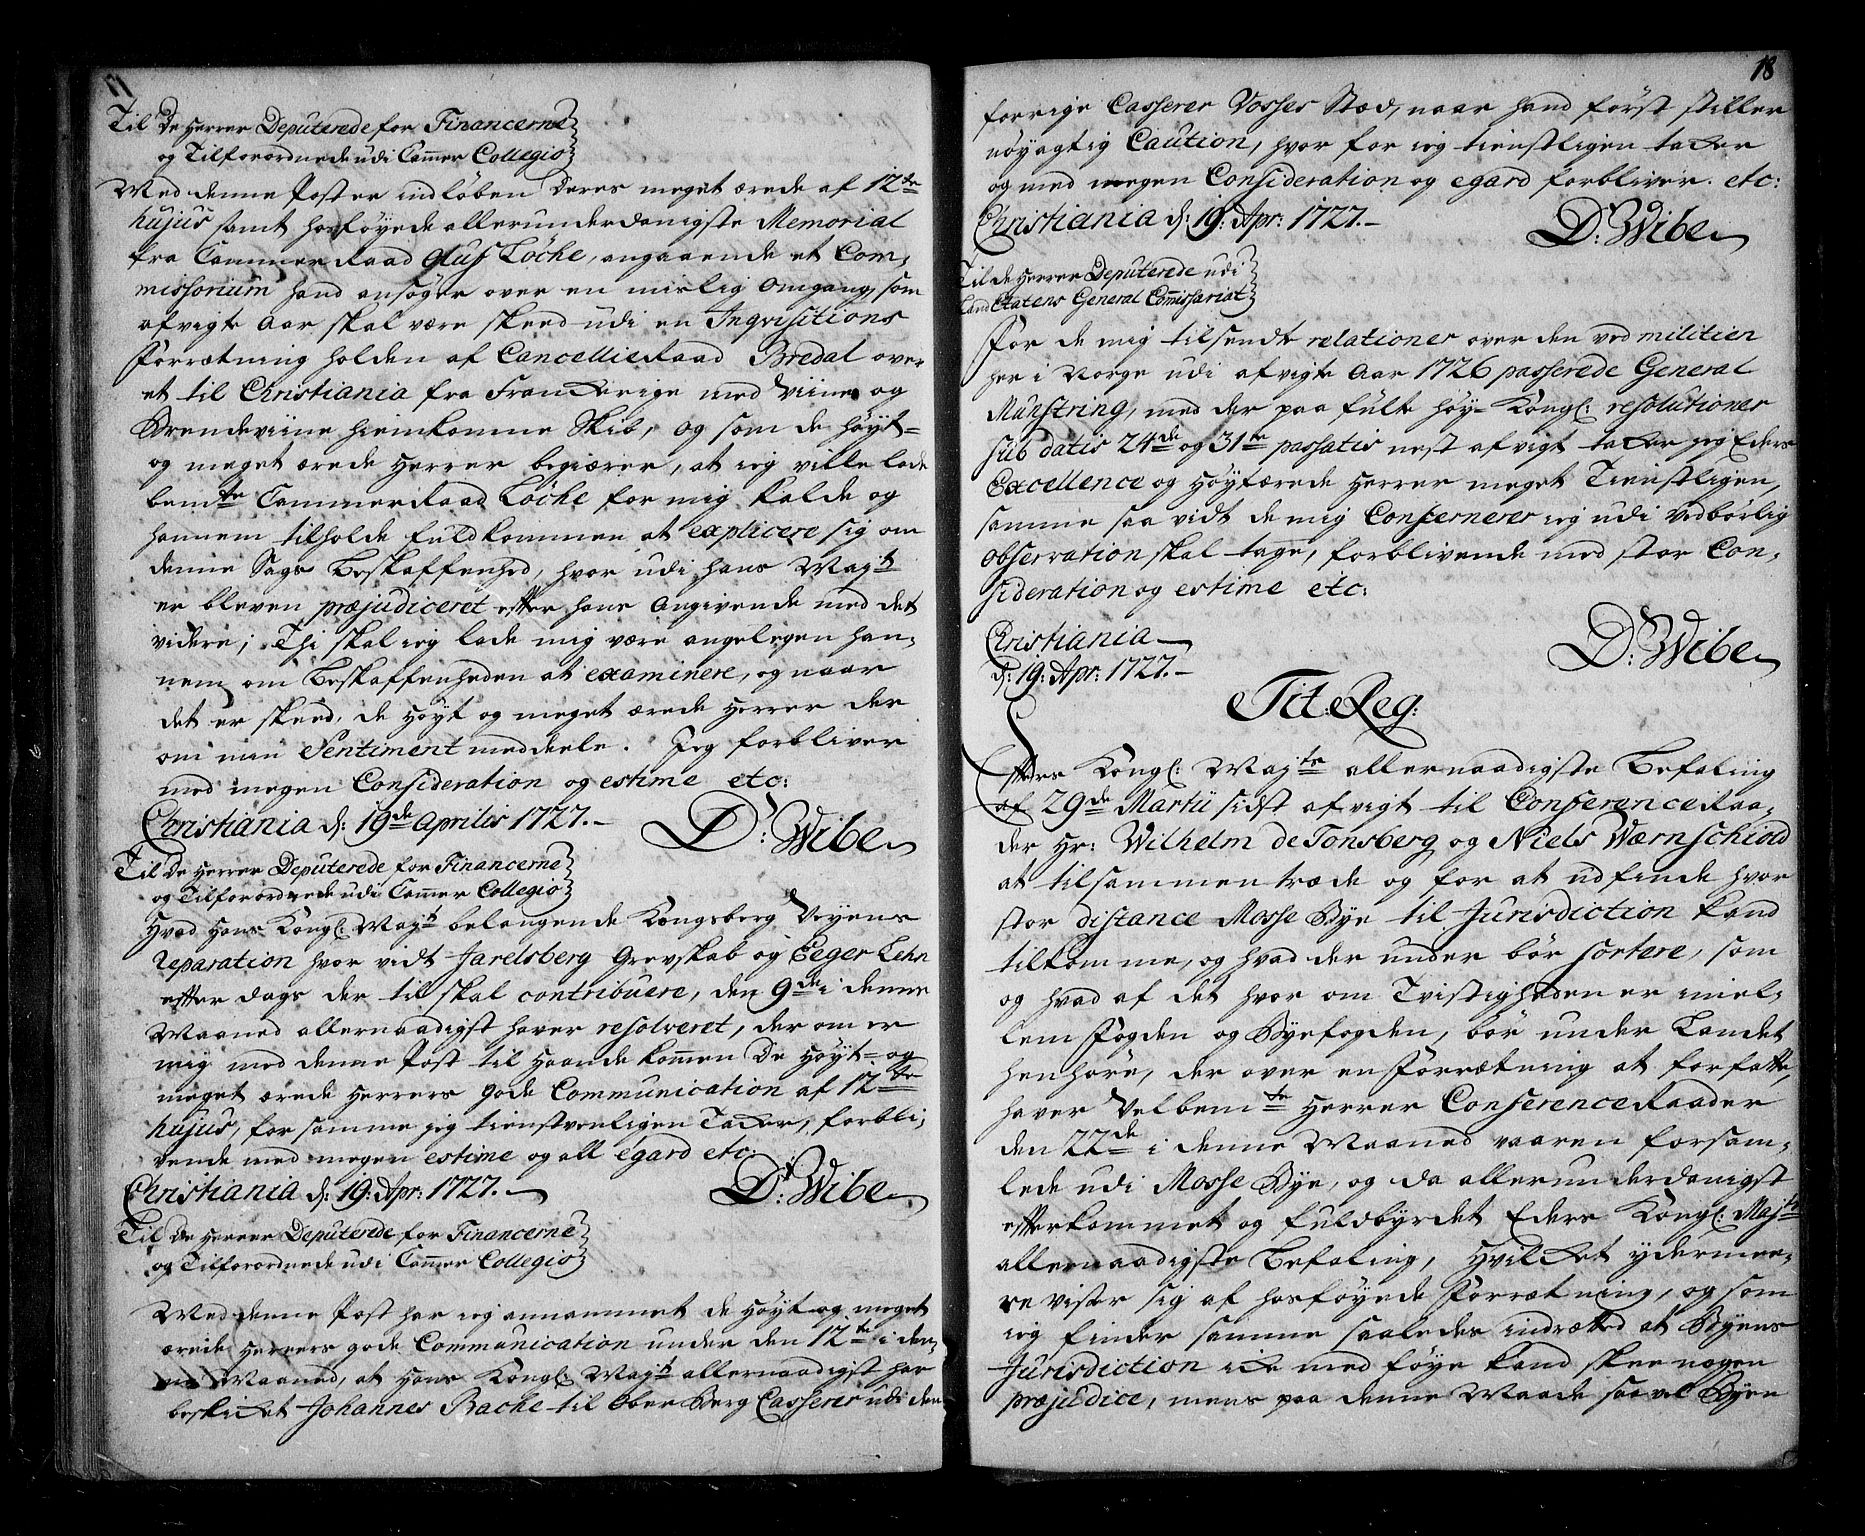 17
Til De Herrer Deputerede for Financerne
og Tilforordnede udi Cammer Collegio
Med denne Post er indløben Deres meget ærede af 12te
hujus samt hosføyede allerunderdanigste Memorial
fra Cammer Raad Oluf Løche, angaaende et Com-
missorium hand ansøger over en mislig Omgang, som
afvigte Aar, skal være skeed udi en Inqvisitions
Forrætning holden af CancellieRaad Bredal over
et til Christiania fra Franckerige med Viine og
Brendeviine hiemkomne Skib, og som de Høyt-
og meget ærede Herrer begiærer, at ieg ville lade
bemte CammerRaad Løche for mig kalde og
hannem tilholde fuldkommen at explicere sig om
denne Sags Beskaffenhed, hvor udi hans Mayt
er bleven præjudiceret efter hans Angivende med det
videre; Thi skal ieg lade mig være angelegen han-
nem om Beskaffenheden at examinere, og naar
det er skeed, de Høyt og meget ærede Herrer der
om min Sentiment meddeele. Jeg forbliver
med megen Consideration og estime etc:
Christiania d: 19de Aprilis 1727.
D: Wibe
Til De Herrer Deputerede for Financerne
og Tilforordnede udi Cammer Collegio
Hvad Hans Kongl: Mayt belangende Kongsberg Veyens
reparation hvor vidt Jarelsberg Grevskab og Eeger Lehn
efter dags der til skal contribuere, den 9de i denne
Maaned allernaadigst haver resolveret, der om er
mig med denne Post til Haande kommen De Høyt- og
meget ærede Herrers gode Communication af 12te
hujus, for samme jeg tienstvenligen Tacker, forbli-
vende med megen estime og all egard etc:
Christiania d: 19: Apr: 1727.
D: Wibe
Til De Herrer Deputerede for Financerne
og Tilforordnede udi Cammer Collegio
Med denne Post har ieg annammet de Høyt og meget
ærede Herrers gode Communication under den 12te i den-
ne Maaned, at Hans Kongl: Mayt allernaadigst har
beskicket Johannes Bache til Ober Berg Casserer udi den
18
forrige Casserer Vosses Stæd, naar hand først stiller
nøyagtig Caution, hvor for ieg tienstligen tacker
og med megen Consideration og egard forbliver. etc:
Christiania d: 19: Apr: 1727.
D: Wibe
Til de Herrer Deputerede udi
Land Etatens General Comissariat
For de mig tilsendte relationer over den ved militien
her i Norge udi afvigte Aar 1726 passerede General
Munstring, med der paa fulte høy-Kongl: resolutioner
sub datis 24de og 31te passatis nest afvigt tacker jeg Eders
Excellence og Høytærede Herrer meget Tienstligen,
samme saa vidt de mig Concernerer ieg udi Vedbørlig
observation skal tage, forblivende med stor Con-
sideration og estime etc:
Christiania
d: 19: Apr: 1727.
D: Wibe
Tit: Reg:
Efter Eders Kongl: Mayts allernaadigste Befaling
af 29de Martii sidst afvigt til ConferenceRaa-
der Hr: Wilhelm de Tonsberg og Niels Wærnschiold
at tilsammentræde og for at udfinde hvor
stor distance Mosse Bye til Jurisdiction kand
tilkomme, og hvad der under bør sortere, som
og hvad af det hvor om Tvistigheden er imel-
lem Fogden og Byefogden, bør under Landet
henhøre, der over en Forrætning at forfatte,
haver Velbemte Herrer ConferenceRaader
den 22de i denne Maaned vaaren forsam-
lede udi Mosse Bye, og da allerunderdanigst
efterkommet og fuldbyrdet Eders Kongl: Majts
allernaadigste Befaling, Hvilcket ydermee-
re viser sig af hosføyede Forrætning, og som
ieg finder samme saaledes indrætted at Byens
Jurisdiction icke med føye kand skee nogen
præjudice, mens paa denne Maade saavel Byen